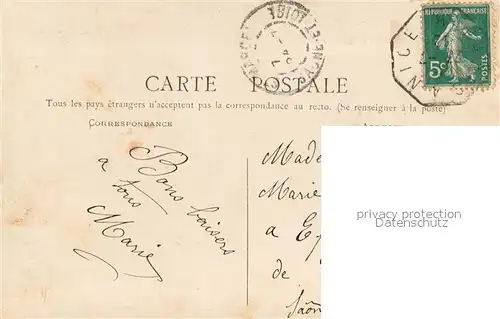 RÉPUBLIQUE FRANÇAISE
5c
POSTES
NICE
CARTE POSTALE
Tous les pays étrangers n'acceptent pas la correspondance au recto. (Se renseigner à la poste)
CORRESPONDANCE
Bons baisers
a tous
Marie
Made
Marie
a
de
Saôn
privacy protection
Datenschutz